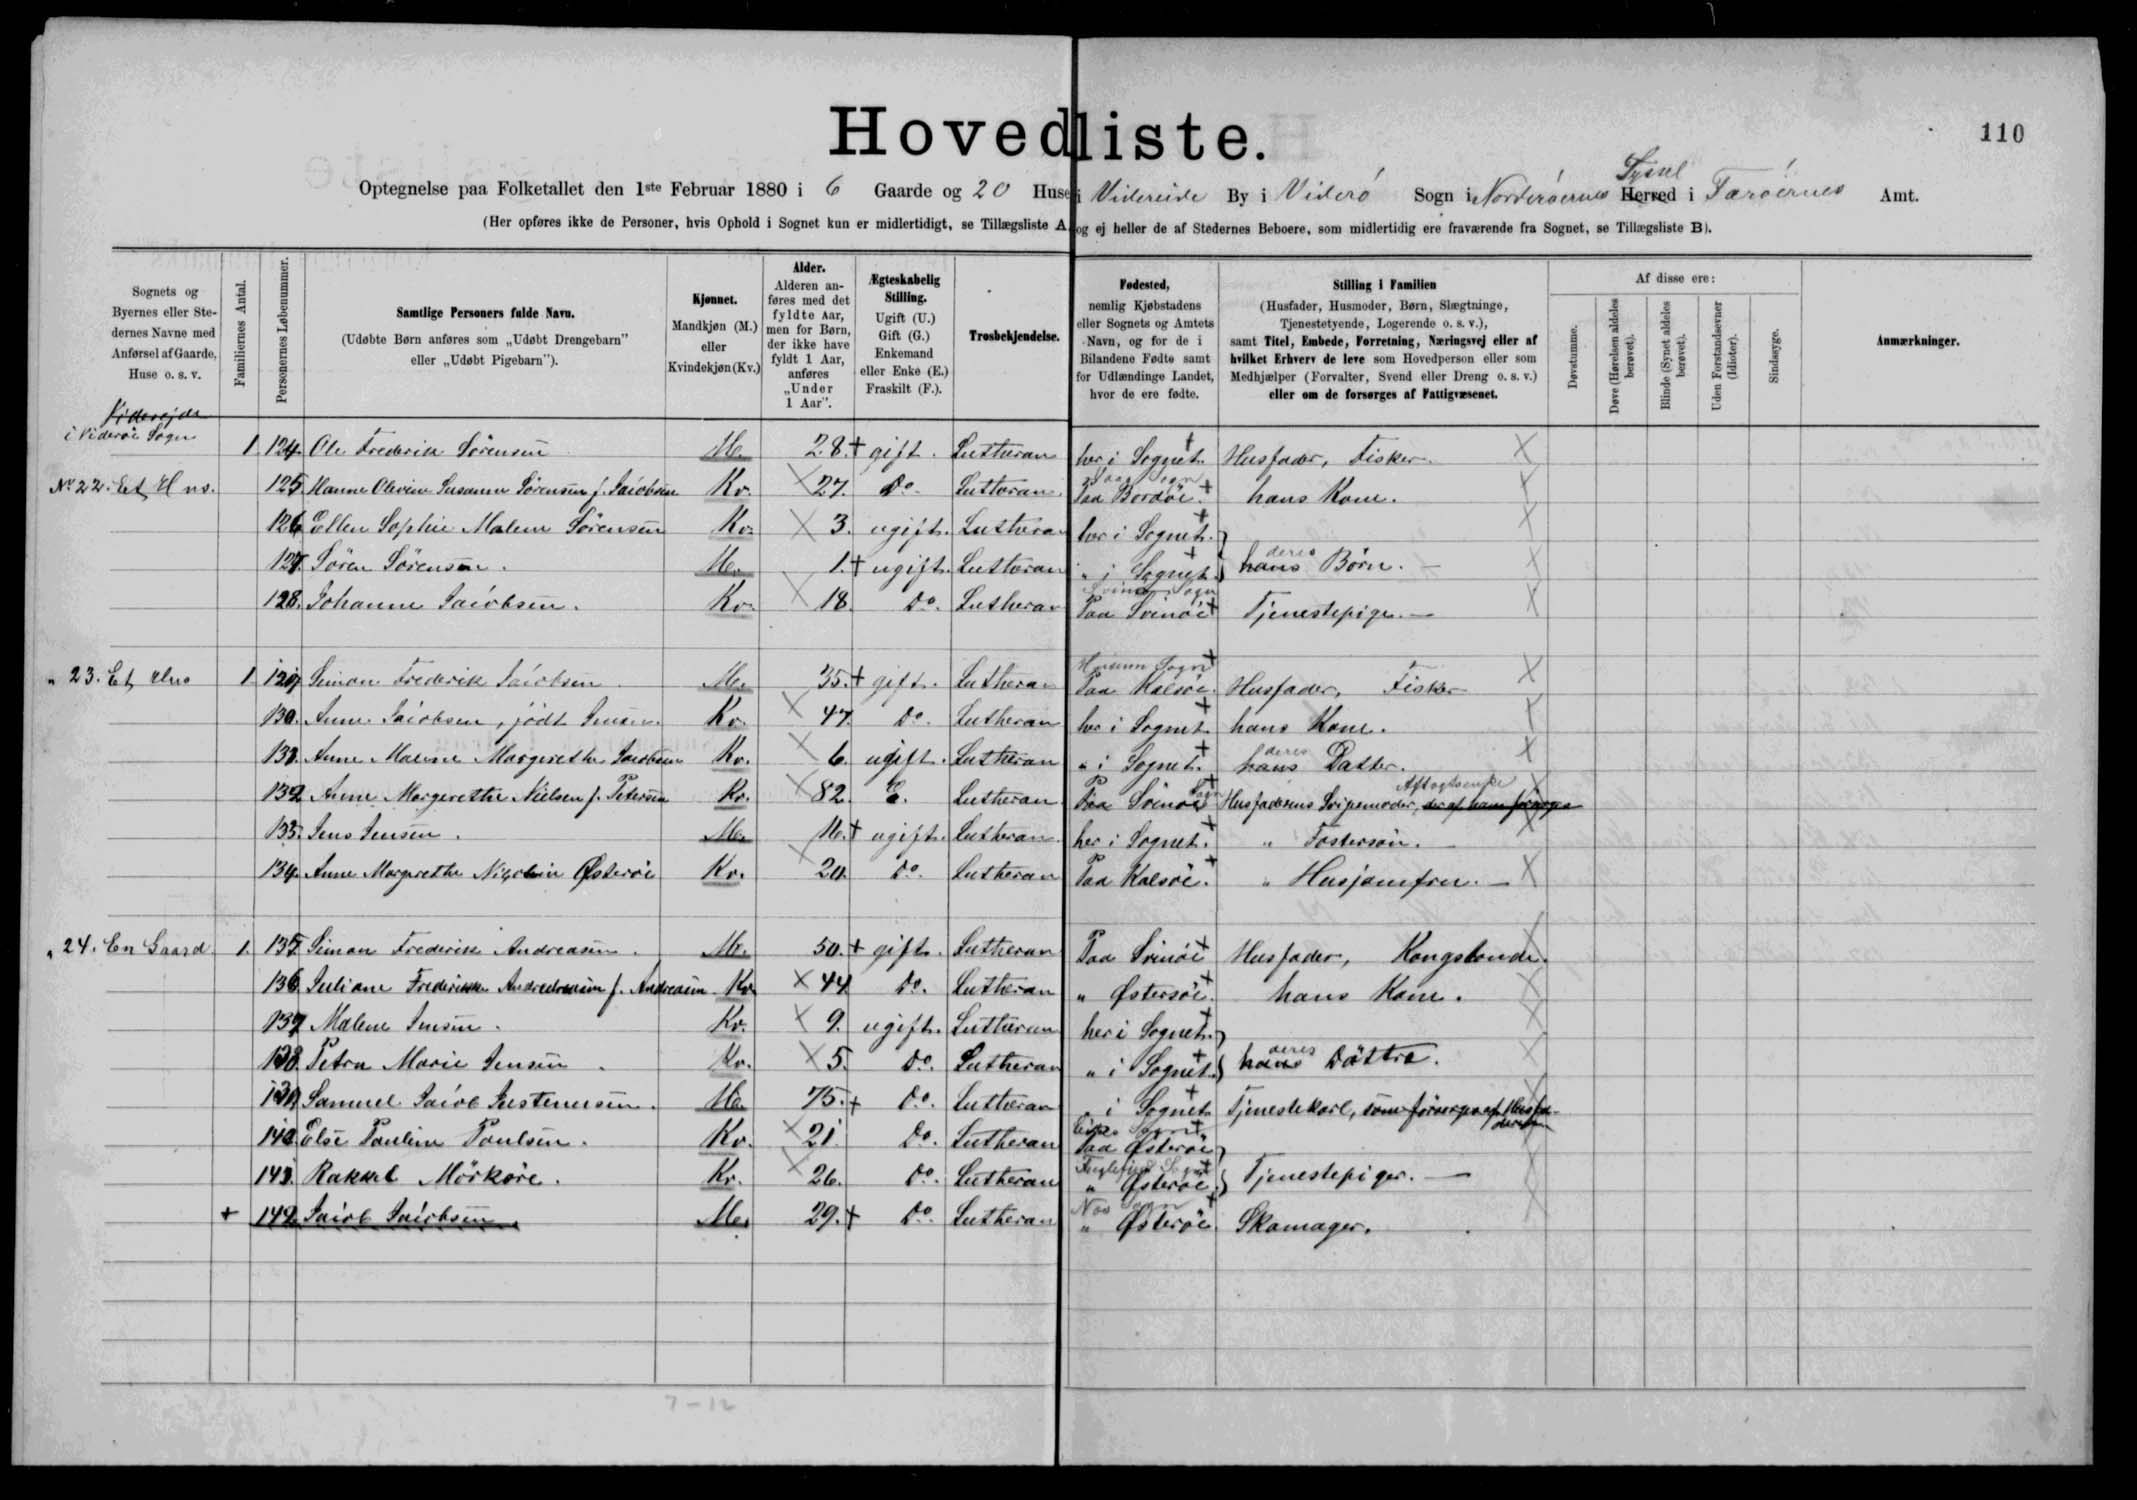 110
Hovedliste.
Optegnelse paa Folketallet den 1ste Februar 1880 i 6 Gaarde og 20 Huse i Videreide By iViderø Sogn i Norderøernes Herred Syssel i Færøernes Amt.
(Her opføres ikke de Personer, hvis Ophold i Sognet kun er midlertidigt, se Tillægsliste A, og ej heller de af Stedernes Beboere, som midlertidig ere fraværende fra Sognet, se Tillægsliste B).
Sognets og Byernes eller Stedernes Navne med Anførsel af Gaarde, Huse o. s. v.
Familiernes Antal.
Personernes Løbenummer.
Samtlige Personers fulde Navn. (Udøbte Børn anføres som „Udøbt Drengebarn” eller „Udøbt Pigebarn”).
Kjønnet. Mandkjøn (M.) eller Kvindekjøn (Kv.)
Alder. Alderen anføres med det fyldte Aar, men for Børn, der ikke have fyldt 1 Aar, anføres „Under 1 Aar”.
Ægteskabelig Stilling. Ugift (U.) Gift (G.) Enkemand eller Enke (E.) Fraskilt (F.).
Trosbekjendelse.
Fødested, nemlig Kjøbstadens eller Sognets og Amtets Navn, og for de i Bilandene Fødte samt for Udlændinge Landet, hvor de ere fødte.
Stilling i Familien (Husfader, Husmoder, Børn, Slægtninge, Tjenestetyende, Logerende o. s. v.), samt Titel, Embede, Forretning, Næringsvej eller af hvilket Erhverv de leve som Hovedperson eller som Medhjælper (Forvalter, Svend eller Dreng o. s. v.) eller om de forsørges af Fattigvæsenet.
Af disse ere:
Døvstumme.
Døve (Hørelsen aldeles berøvet).
Blinde (Synet aldeles berøvet).
Uden Forstandsevner (Idioter).
Sindssyge.
Anmærkninger.
Viderejde
i Viderøe Sogn
1. 124. Ole Frederik Sörensen M. 28. + gift. Lutheran her i Sognet + Husfader, Fisker. X
No 22. Et Hus. 125. Hanne Olevine Susanne Sörensen f. Jacobsen Kv. X 27. Do. Lutheran. Paa Bordöe. + hans Kone. X
126. Ellen Sophie Malene Sörensen Kv. X 3. ugift. Lutheran her i Sognet. + X
127. Sören Sörensen. M. 1. + ugift. Lutheran " i Sognet. + hans deres Børn. X
128. Johanne Jacobsen. Kv. X 18. Do. Lutheran Svinø Sogn Paa Svinöe + Tjenestepige. X
" 23. Et Hus 1. 129. Simon Frederik Jacobsen M. 35. + gift. Lutheran Husum Sogn + Paa Kalsöe. Husfader, Fisker X
130. Anne Jacobsen, födt Jensen. Kv. X 47. Do. Lutheran her i Sognet + hans Kone. X
131. Anne Malene Margrethe Jacobsen Kv. X 6. ugift. Lutheran " i Sognet. + hans deres Datter. X
132. Anne Margrethe Nielsen f. Petersen Kv. X 82. E. Lutheran Paa Svinöe Sogn + Husfaderens Svigermoder, der af ham forsørges Aftægtsenke X
133. Jens Jensen. M. 16. + ugift. Lutheran. her i Sognet. + " Fostersön. X
134. Anne Margrethe Nicoline Østeröe Kv. X 20. Do. Lutheran Paa Kalsöe. + " Husjomfru. X
" 24. En Gaard. 1. 135. Simon Frederik Andreasen. M. 50. + gift. Lutheran Paa Svinöe + Husfader, Kongsbonde. X
136. Juliane Frederikke Andreasen f. Andreasen Kv. X 44 Do. Lutheran " Østersöe. + hans Kone. X
137. Malene Jensen. Kv. X 9. ugift. Lutheran her i Sognet. + X
138. Petra Marie Jensen. Kv. X 5. Do. Lutheran " i Sognet. + hans deres Döttre. X
139. Samuel Jacob Justenussen. M. 75. + Do. Lutheran " i Sognet + Tjenestekarl, som forsørges af Husfaderen. X
140. Else Pauline Poulsen. Kv. X 21. Do. Lutheran Paa Østeröe +
141. Rakkel Mörköre. Kv. X 26. Do. Lutheran Fuglefjord Sogn + " Østeröe. Tjenestepiger. X
+ 142. Jacob Jacobsen M. 29. + Do. Lutheran Næs Sogn + " Østeröe. Skomager. X
7-12